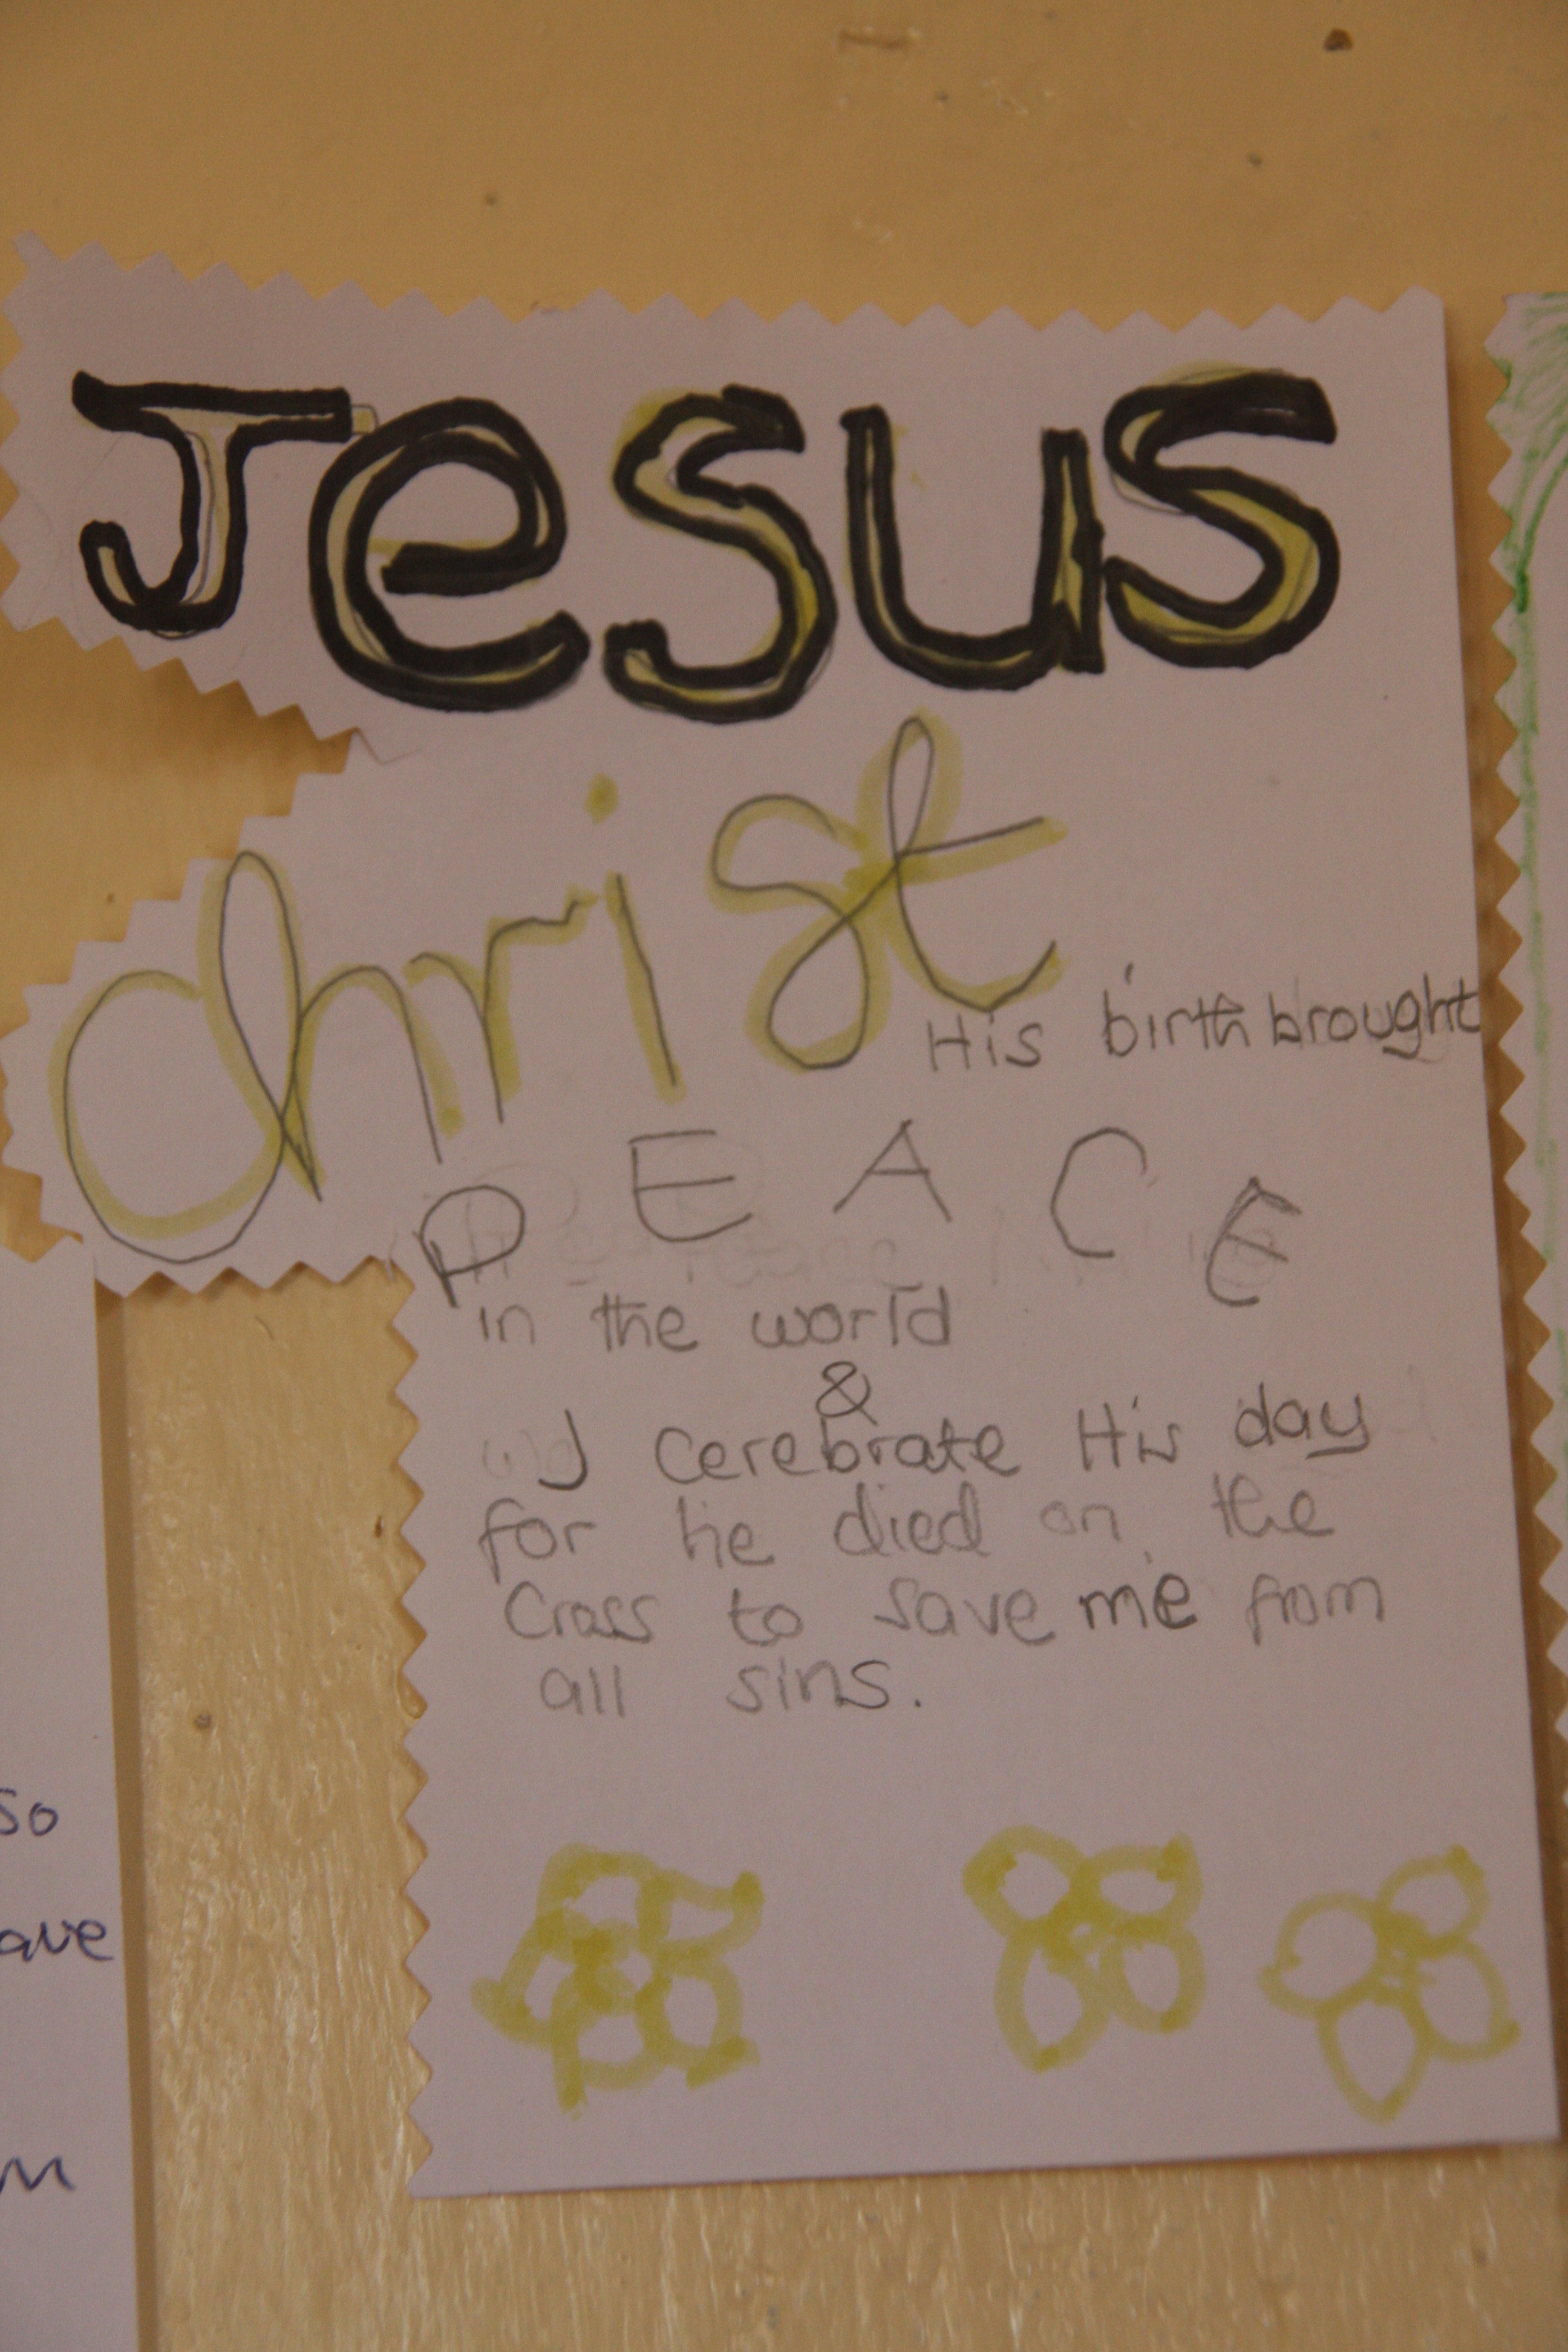 Jesus
christ
His birth brought
PEACE
in the world
&
I cerebrate His day
for he died on the
Cross to save me from
all sins.
so
ave
m